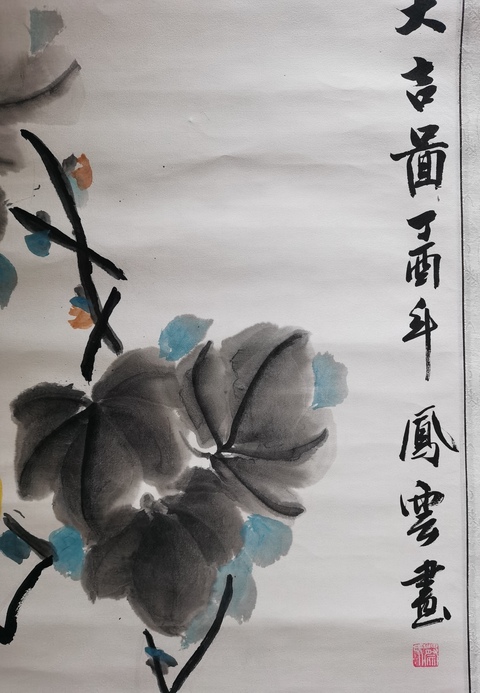 大吉圖丁酉年鳳雲畫